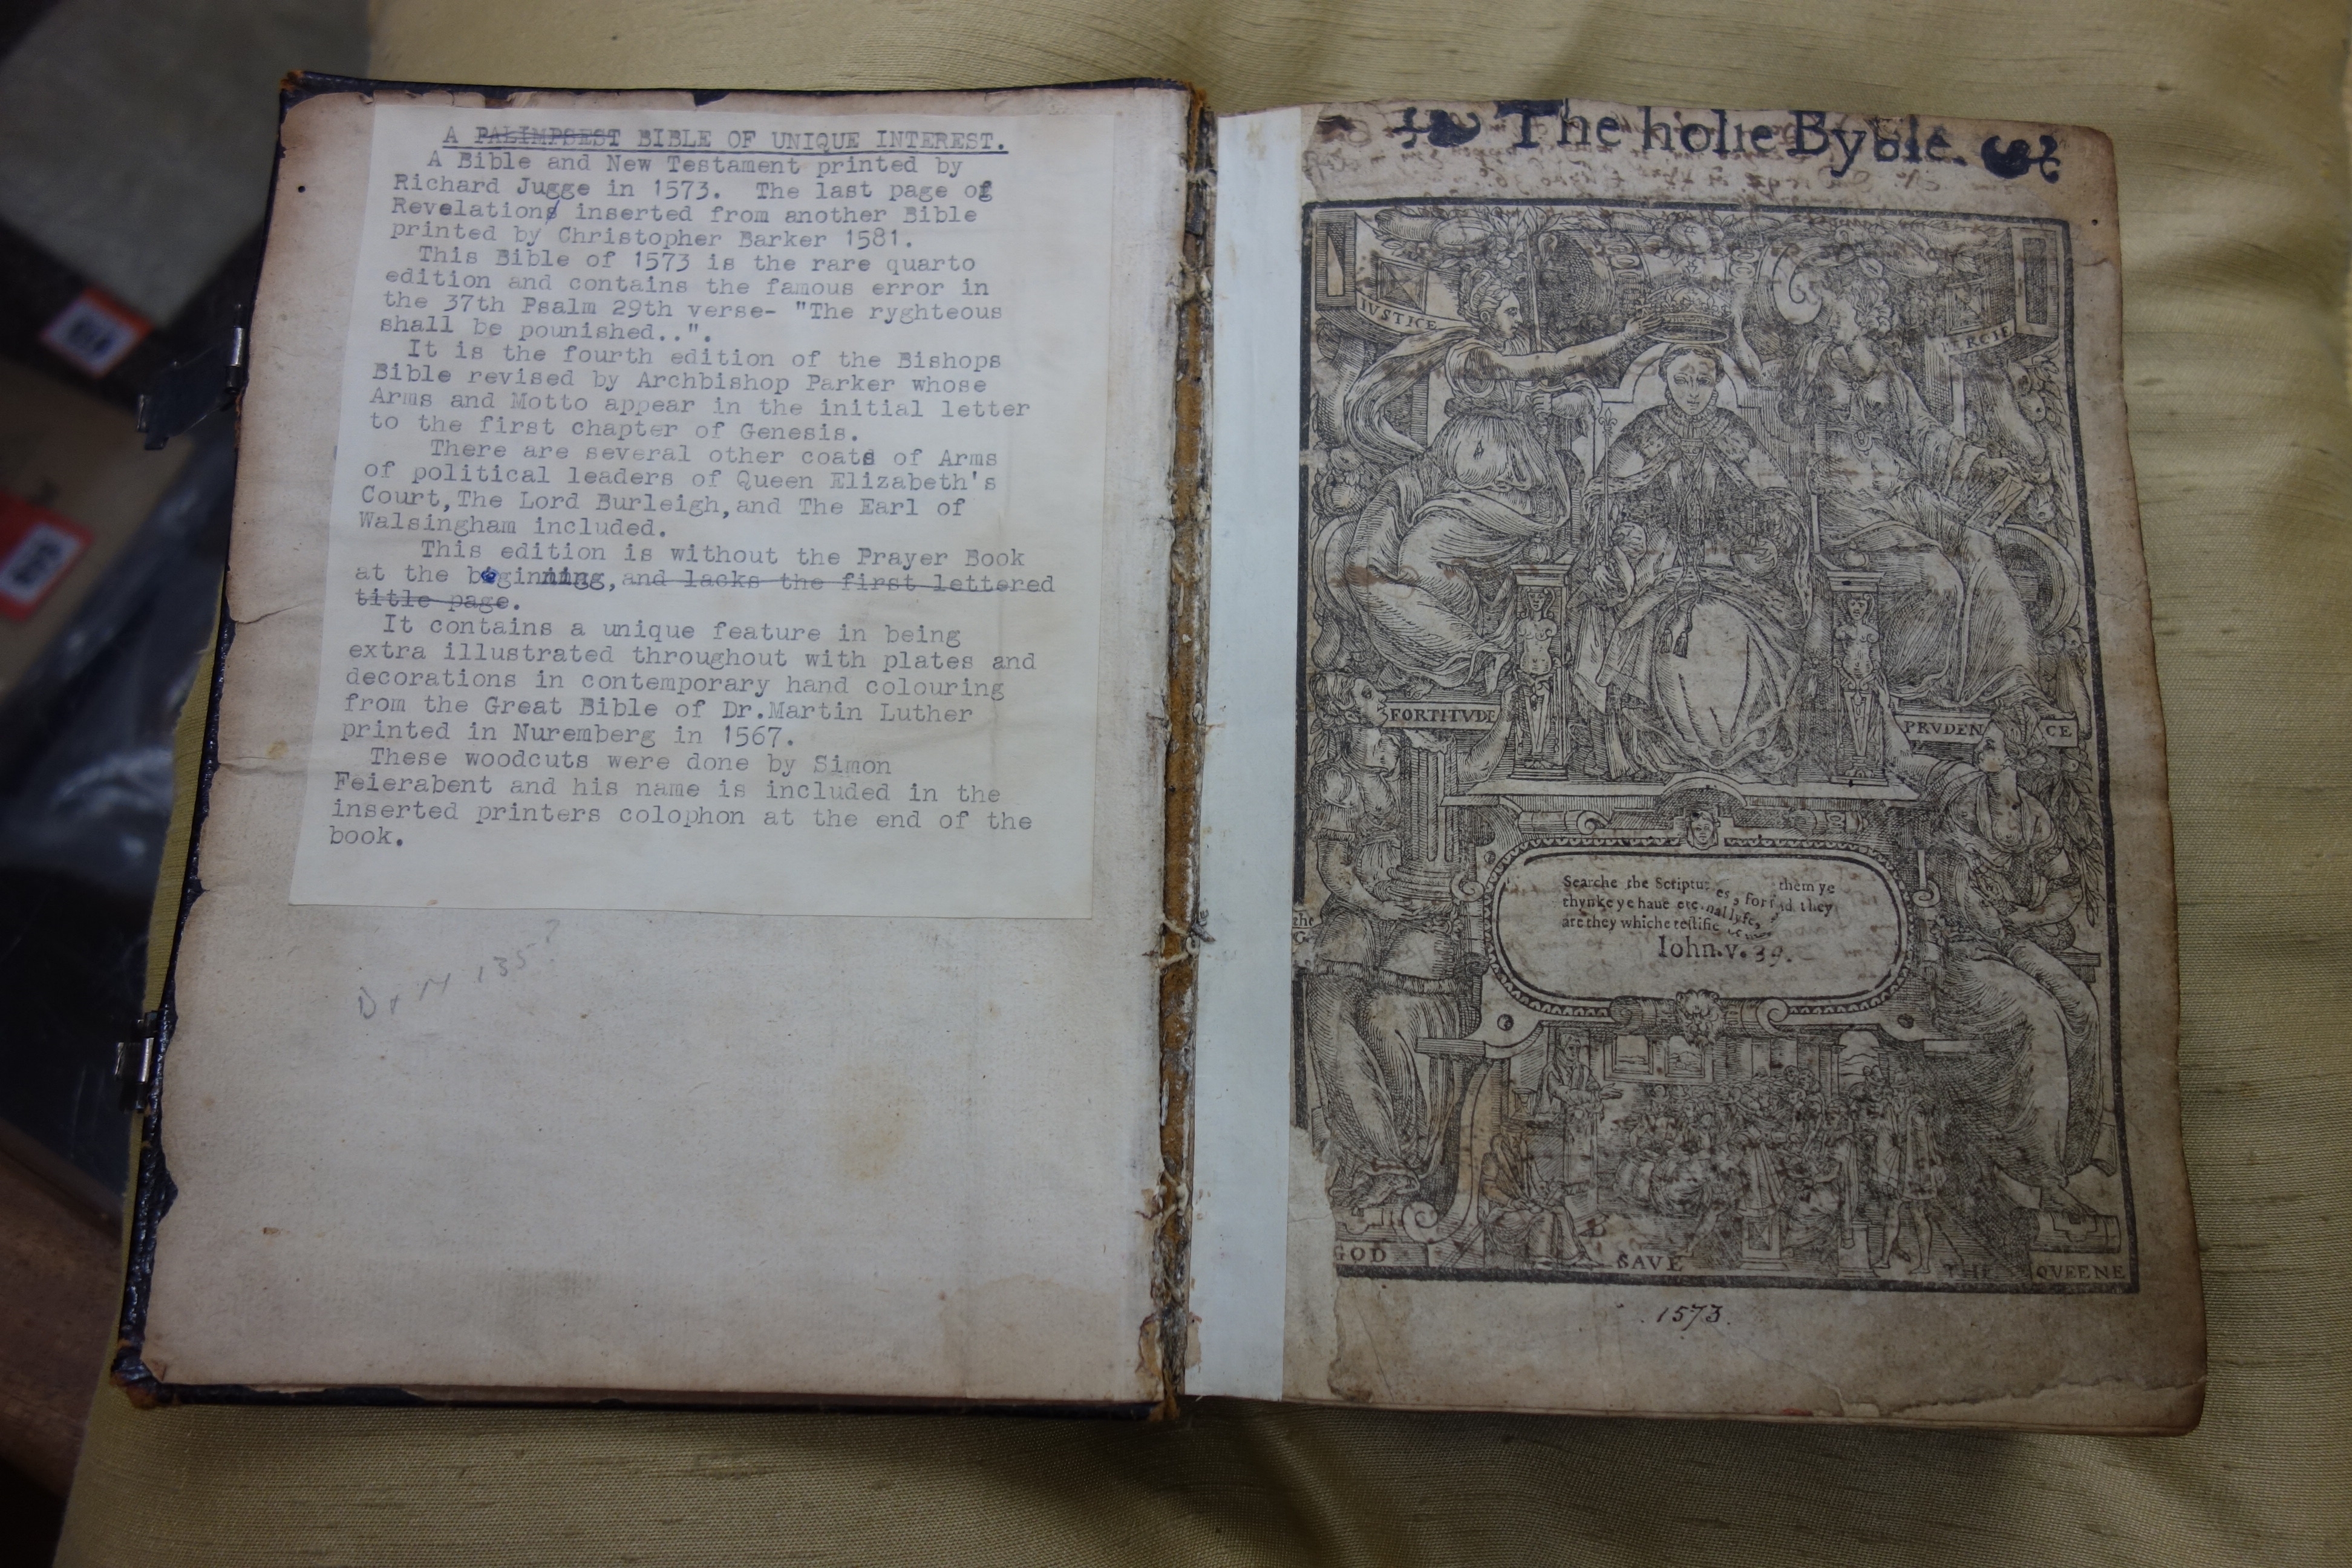 A PALIMPSEST BIBLE OF UNIQUE INTEREST.
A Bible and New Testament printed by
Richard Jugge in 1573. The last page of
Revelations inserted from another Bible
printed by Christopher Barker 1581.
This Bible of 1573 is the rare quarto
edition and contains the famous error in
the 37th Psalm 29th verse- "The ryghteous
shall be pounished..".
It is the fourth edition of the Bishops
Bible revised by Archbishop Parker whose
Arms and Motto appear in the initial letter
to the first chapter of Genesis.
There are several other coats of Arms
of political leaders of Queen Elizabeth's
Court,The Lord Burleigh,and The Earl of
Walsingham included.
This edition is without the Prayer Book
at the beginning,and lacks the first lettered
title page.
It contains a unique feature in being
extra illustrated throughout with plates and
decorations in contemporary hand colouring
from the Great Bible of Dr.Martin Luther
printed in Nuremberg in 1567.
These woodcuts were done by Simon
Feierabent and his name is included in the
inserted printers colophon at the end of the
book.
The holie Byble.
IVSTICE
ERCIE
FORTITVDE
PRVDEN CE
Searche the Scriptures, for them ye
thynke ye haue eternal lyfe, and they
are they whiche testifie
Iohn.v.39.
GOD SAVE THE QVEENE
1573.